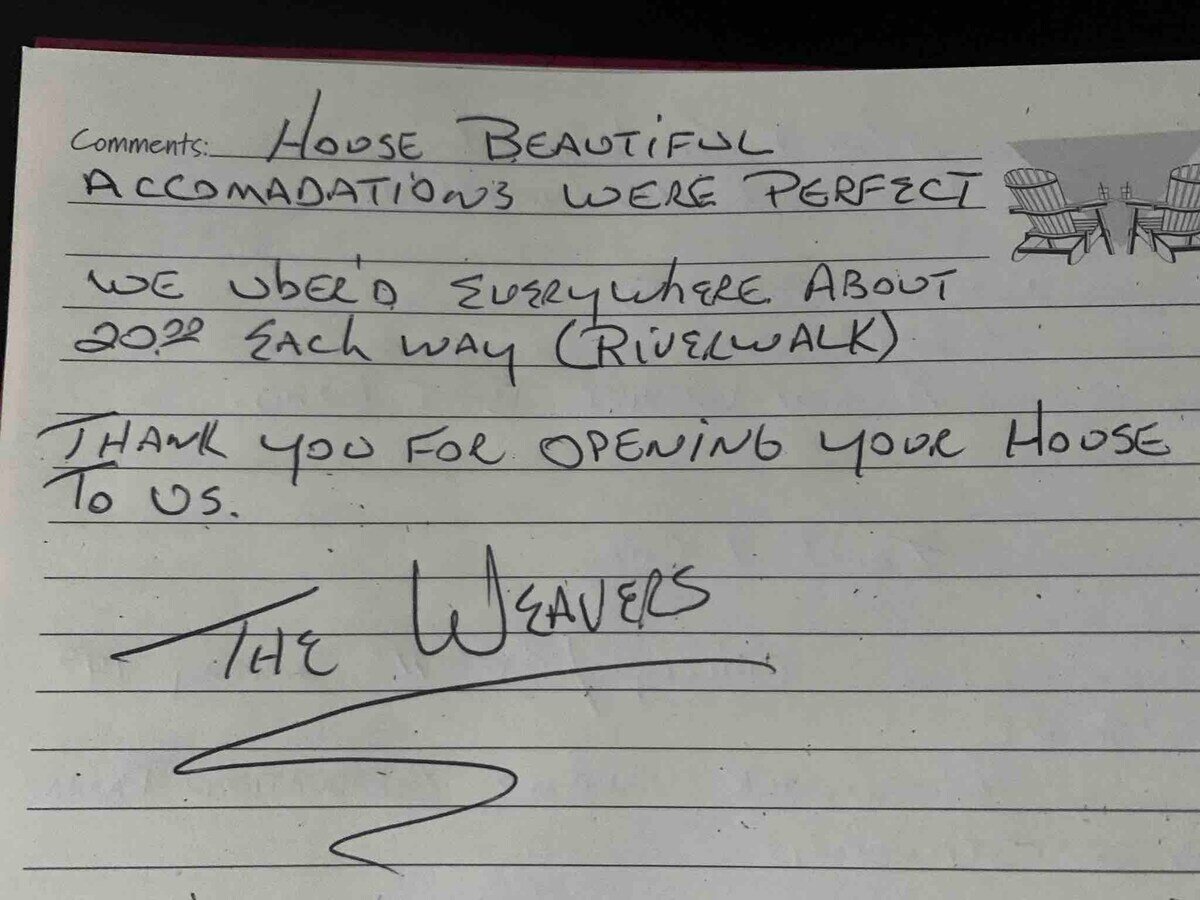 Comments: HOUSE BEAUTIFUL
ACCOMADATIONS WERE PERFECT
WE UBER'D EVERYWHERE ABOUT
20.00 EACH WAY (RIVERWALK)
THANK YOU FOR OPENING YOUR HOUSE
TO US.
THE WEAVERS